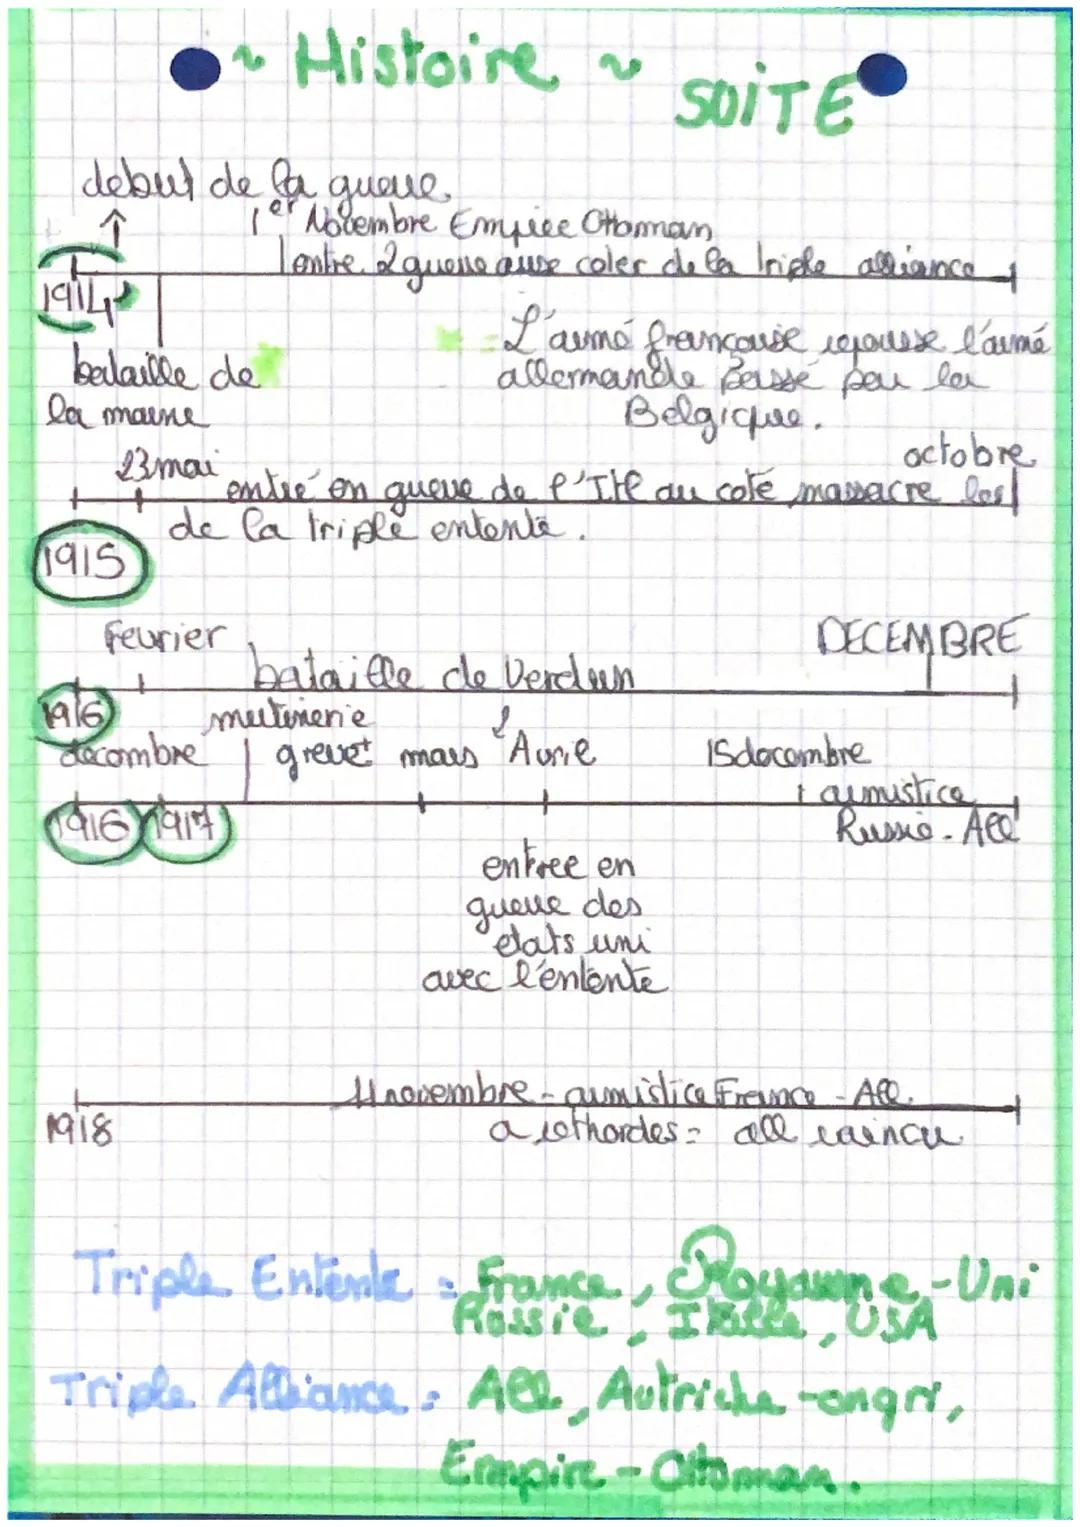 ~ Histoire ~
SOiTE
debut de la gueue
1er Novembre Empiee Ottoman
entre 2 gueue ause coler de la triple alliance
1914
bataille de
la maine
= L'aumé francaise repousse l'aumé
allermande passé pau la
Belgique.
octobre
23 mai
entué en gueue de l'Itl au coté massacre les
de la triple entente.
1915
Feurier
DECEMBRE
bataille de Verdun
1916
mutinerie
decombre
greve mars Avrie
15 decombre
armistice
1916 1917
Russie - All
entree en
gueue des
etats uni
avec l'entente
11 novembre - armistice France - All.
1918
a rethordes = all vaincu
Triple Entente : France, Royaume-Uni
Rossie, Italle, USA
Triple Alliance : All, Autriche-ongri,
Empire-Ottoman.